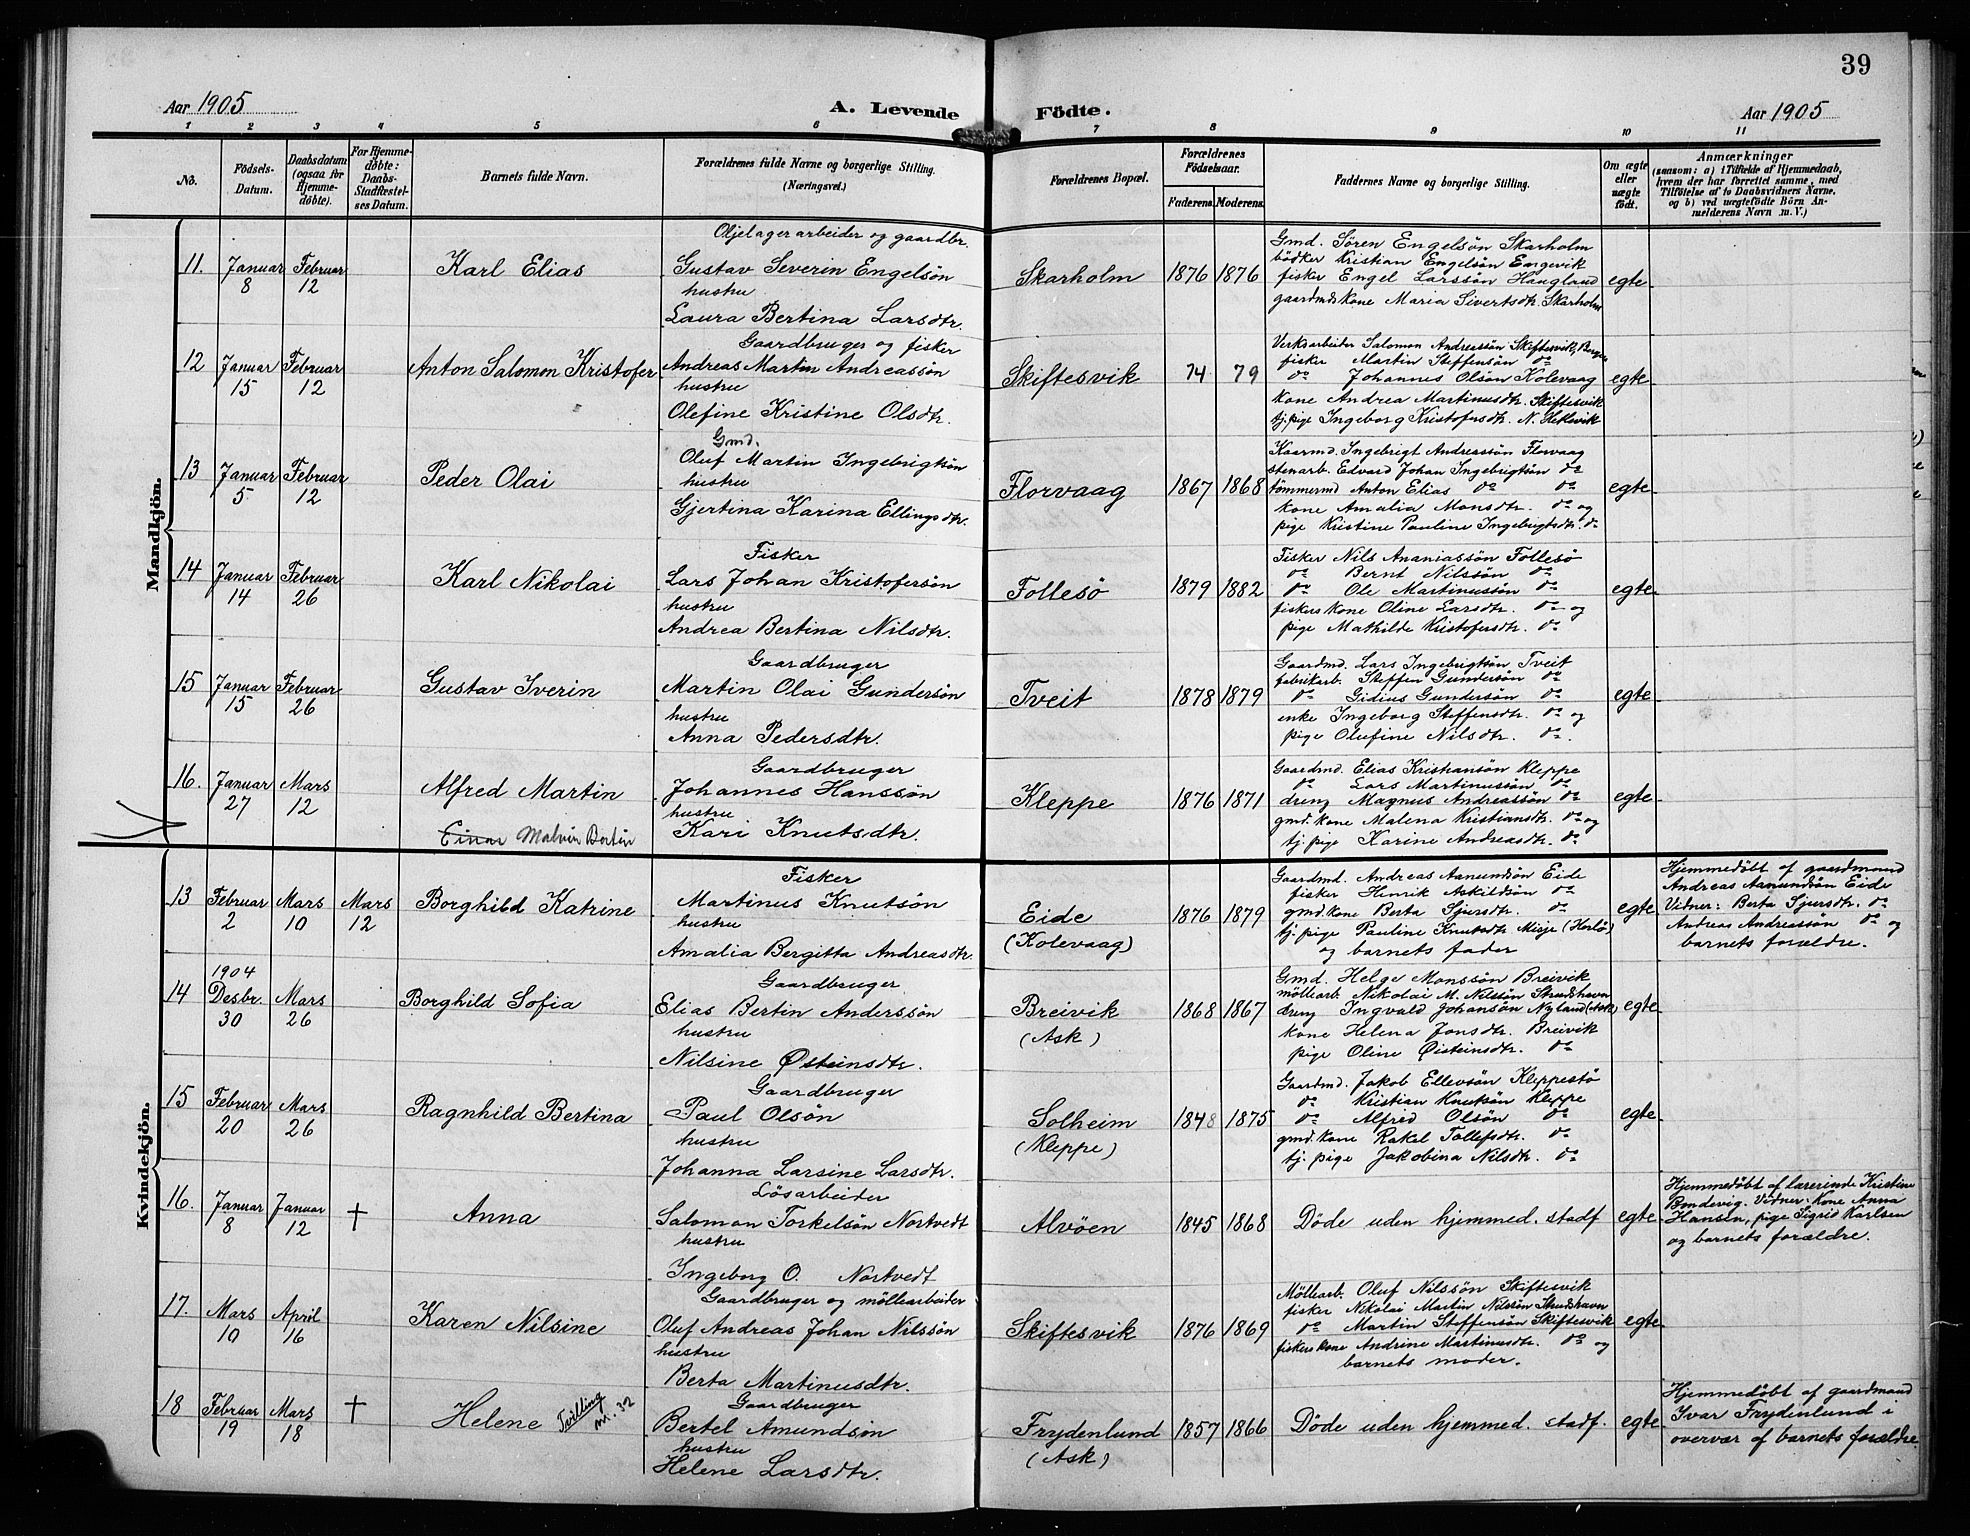 39
Aar 1905
A. Levende
Födte.
Aar 1905
1 2 3 4 5 6 7 8 9 10 11
No.
Födsels-
Datum.
Daabsdatum
(ogsaa for
Hjemme-
döbte).
For Hjemme-
döbte:
Daabs-
Stadfæstel-
ses Datum.
Barnets fulde Navn.
Forældrenes fulde Navne og borgerlige Stilling.
(Næringsvei.)
Forældrenes Bopæl.
Forældrenes
Födselsaar.
Faderens. Moderens.
Faddernes Navne og borgerlige Stilling.
Om ægte
eller
uægte
födt.
Anmærkninger
(saasom: a) i Tilfælde af Hjemmedaab,
hvem der har forrettet samme, med
Tilföielse af to Daabsvidners Navne,
og b) ved uægtefödte Börn An-
melderens Navn m. V.)
Mandkjön.
11. Januar 8 Februar 12
Karl Elias
Oljelagerarbeider og gaardbr.
Gustav Severin Engelsön
hustru
Laura Bertina Larsdtr.
Skarholm 1876 1876
Gmd. Sören Engelsön Skarholm
bödker Kristian Engelsön Engevik
fisker Engel Larssön Haugland
gaardmds kone Maria Sivertsdtr. Skarholm
egte
12 Januar 15 Februar 12
Anton Salomon Kristofer
Gaardbruger og fisker
Andreas Martin Andreassön
hustru
Olefine Kristine Olsdtr.
Skiftesvik 74 79
Verksarbeider Salomon Andreassön Skiftesvik, Bergen
fisker Martin Steffensön do
do Johannes Olsön Kolevaag
kone Andrea Martinusdtr. Skiftesvik
tj. pige Ingeborg Kristofersdtr. N. Hetlevik
egte
13 Januar 5 Februar 12
Peder Olai
Gmd.
Oluf Martin Ingebrigtsön
hustru
Gjertina Karina Ellingsdtr.
Florvaag 1867 1868
Kaarmd. Ingebrigt Andreassön Florvaag
stenarb. Edvard Johan Ingebrigtsön do
tömmermd Anton Elias do do
kone Amalia Monsdtr. do og
pige Kristine Pauline Ingebrigtsdtr. do
egte
14 Januar 14 Februar 26
Karl Nikolai
Fisker
Lars Johan Kristofersön
hustru
Andrea Bertina Nilsdtr.
Follesö 1879 1882
Fisker Nils Ananiassön Follesö
do Bernt Nilssön do
do Ole Martinussön do
fiskers kone Oline Larsdtr. do og
pige Mathilde Kristofersdtr. do
egte
15 Januar 15 Februar 26
Gustav Iverin
Gaardbruger
Martin Olai Gundersön
hustru
Anna Pedersdtr.
Tveit 1878 1879
Gaardmd. Lars Ingebrigtsön Tveit
fabrikarb. Steffen Gundersön do
do Gidius Gundersön do
enke Ingeborg Steffensdtr. do og
pige Olufine Nilsdtr. do.
egte
16. Januar 27 Mars 12
Alfred Martin
Einar Malvin Bertin
Gaardbruger
Johannes Hanssön
hustru
Kari Knutsdtr.
Kleppe 1876 1871
Gaardmd. Elias Kristiansön Kleppe
do Lars Martinussön do
dreng Magnus Andreassön do
gmd. kone Malena Kristiansdtr. do og
tj. pige Karine Andreasdtr. do
egte
Kvindekjön.
13 Februar 2 Mars 10 Mars 12
Borghild Katrine
Fisker
Martinus Knutsön
hustru
Amalia Bergitta Andreasdtr.
Eide
(Kolevaag)
1876 1879
Gaardmd. Andreas Aamundsön Eide
fisker Henrik Askildsön do
gmd. kone Berta Sjursdtr. do
tj. pige Pauline Knutsdtr Misje (Herlö)
og barnets fader
egte
Hjemmedöbt af gaardmand
Andreas Aamundsön Eide
Vidner: Berta Sjursdtr. do
Andreas Andreassön do og
barnets forældre.
14 1904 Desbr. 30 Mars 26
Borghild Sofia
Gaardbruger
Elias Bertin Anderssön
hustru
Nilsine Østeinsdtr.
Breivik
(Ask)
1868 1867
Gmd. Helge Monssön Breivik
möllearb. Nikolai M. Nilssön Strudshavn
dreng Ingvald Johansön Nyland (Ask)
kone Helena Jonsdtr. Breivik
pige Oline Øisteinsdtr. do
egte
15 Februar 20 Mars 26
Ragnhild Bertina
Gaardbruger
Paul Olsön
hustru
Johanna Larsine Larsdtr.
Solheim
(Kleppe)
1848 1875
Gaardmd. Jakob Ellevsön Kleppestö
do Kristian Knutsön Kleppe
do Alfred Olsön do
gmd. kone Rakel Tollefsdtr. do
tj. pige Jakobina Nilsdtr. do
egte
16. Januar 8 Januar 12 †
Anna
Lösarbeider
Salomon Torkelsön Nortvedt
hustru
Ingeborg O. Nortvedt
Alvöen 1845 1868
Döde uden hjemmed. stadf
egte
Hjemmedöbt af lærerinde Kristine
Bondevig. Vidner: Kone Anna
Hansen, pige Sigrid Karlsen
og barnets forældre.
17. Mars 10 April 16
Karen Nilsine
Gaardbruger og möllearbeider
Oluf Andreas Johan Nilssön
hustru
Berta Martinusdtr.
Skiftesvik 1876 1869
Möllearb. Oluf Nilssön Skiftesvik
fisker Nikolai Martin Nilssön Strudshavn
do Martin Steffensön Skiftesvik
fiskers kone Andrine Martinusdtr. do og
barnets moder.
egte
18 Februar 19 Mars 18 †
Helene Tvilling
nr. 32
Gaardbruger
Bertel Amundsön
hustru
Helene Larsdtr.
Frydenlund
(Ask)
1857 1866
Döde uden hjemmed. stadf.
egte
Hjemmedöbt af gaardmand
Ivar Frydenlund i
overvær af barnets forældre